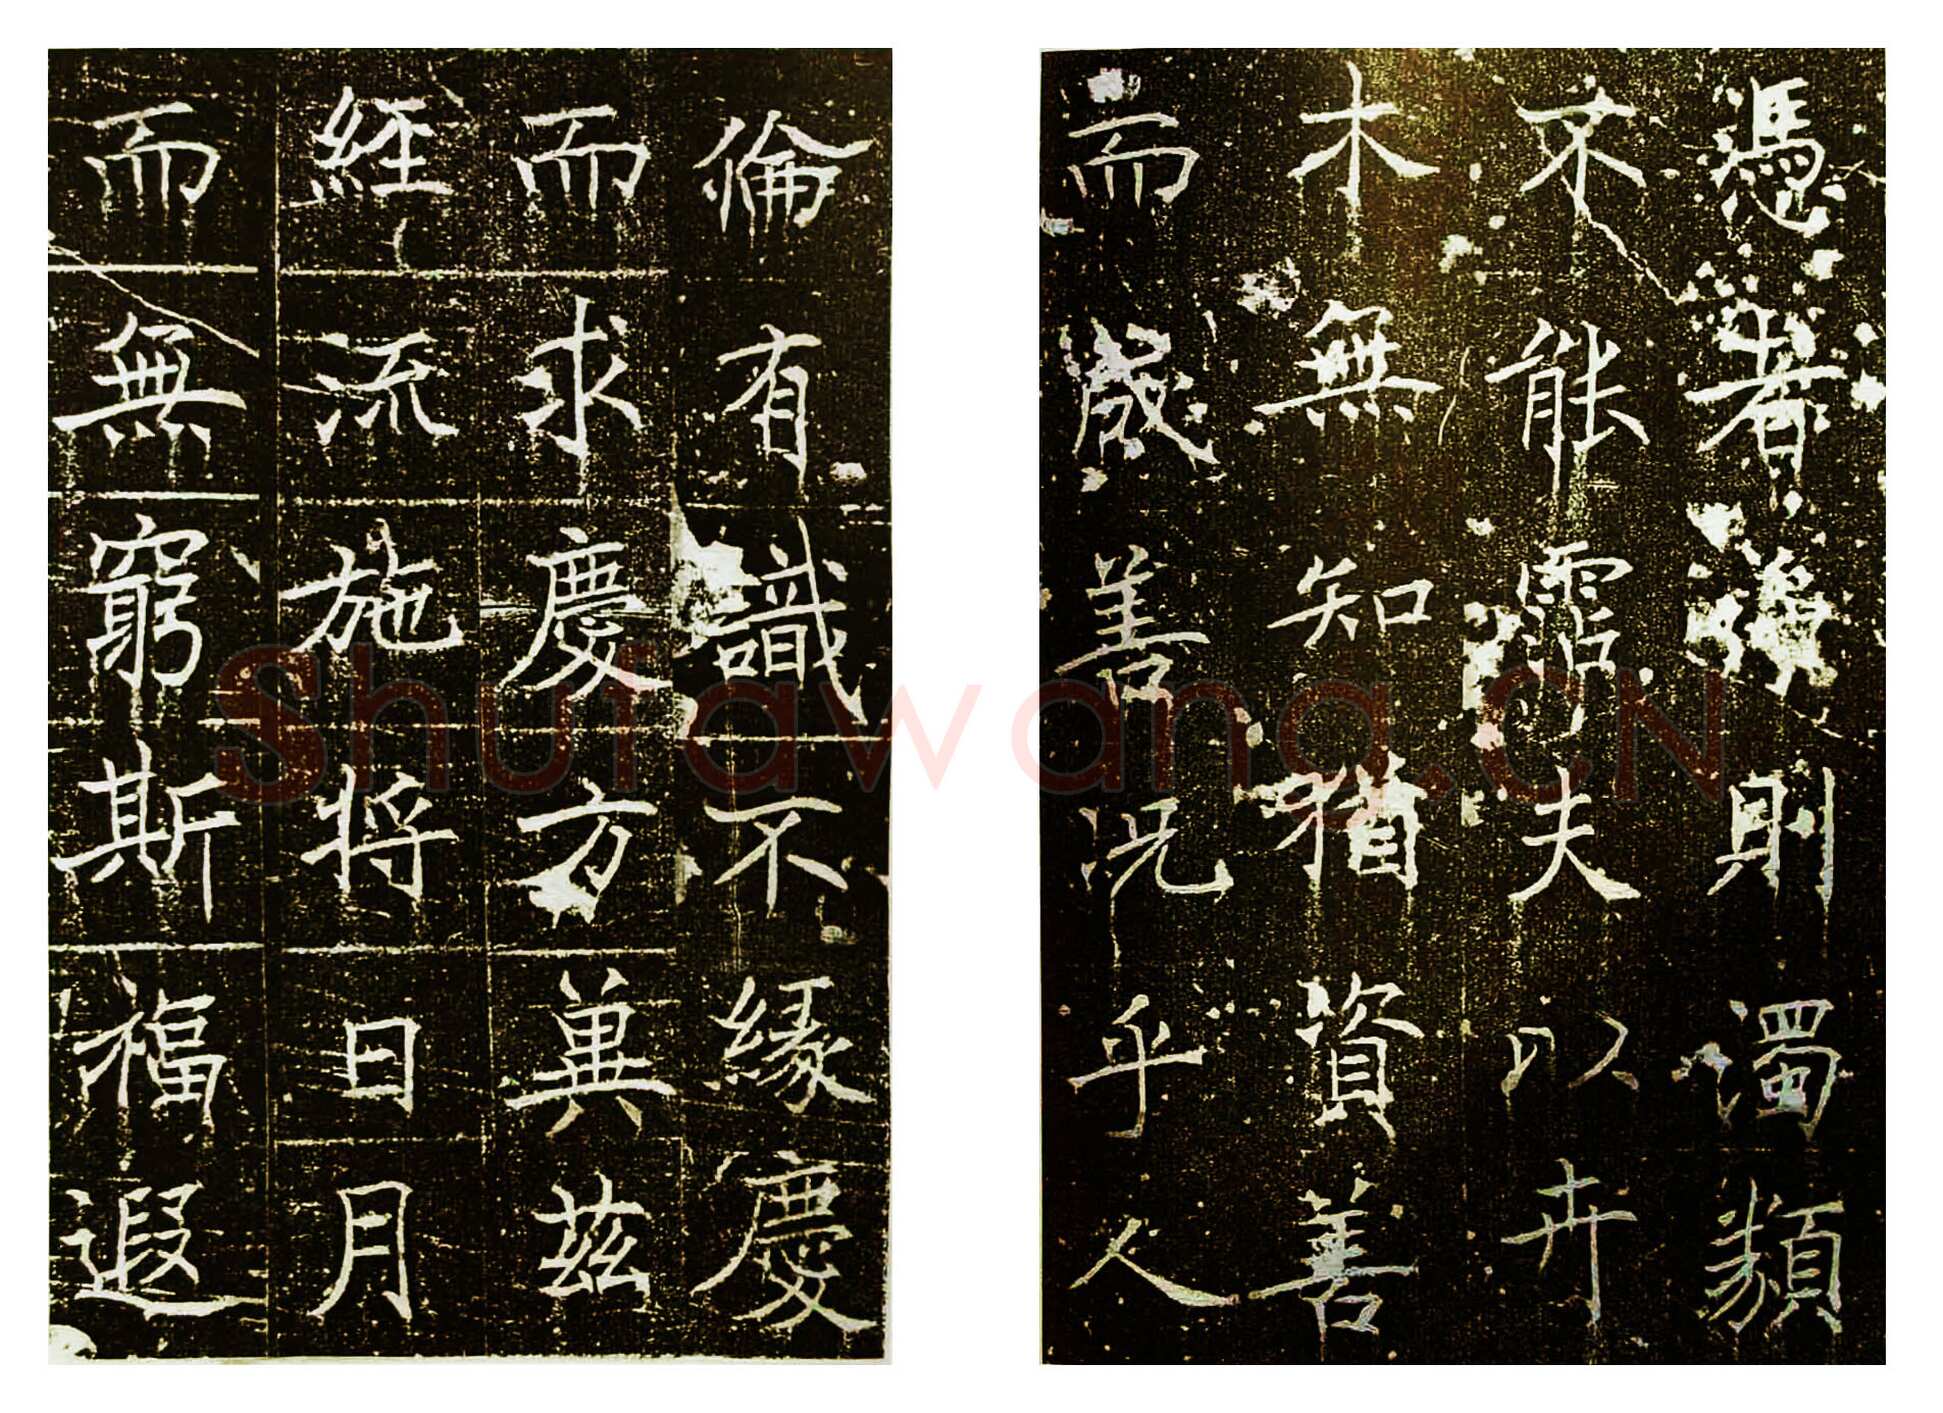 憑者淨則濁類
不能霑夫以卉
木無知猶資善
而成善況乎人
倫有識不緣慶
而求慶方冀茲
経流施将日月
而無窮斯福遐
Shufawang.CN